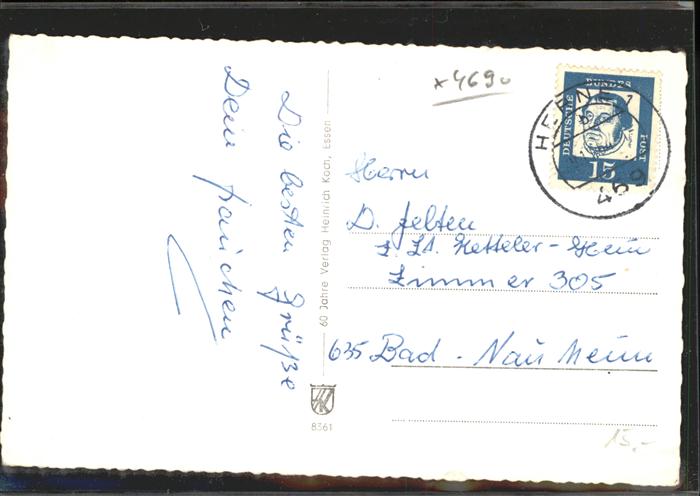 Die besten Grüße
Dein
60 Jahre Verlag Heinrich Koch, Essen
8361
*4690
DEUTSCHE
BUNDES
POST
15
HERNE 1
469
Herrn
D. Felten
z. Zt. Ketteler-Heim
Zimmer 305
635 Bad-Nauheim
15,-